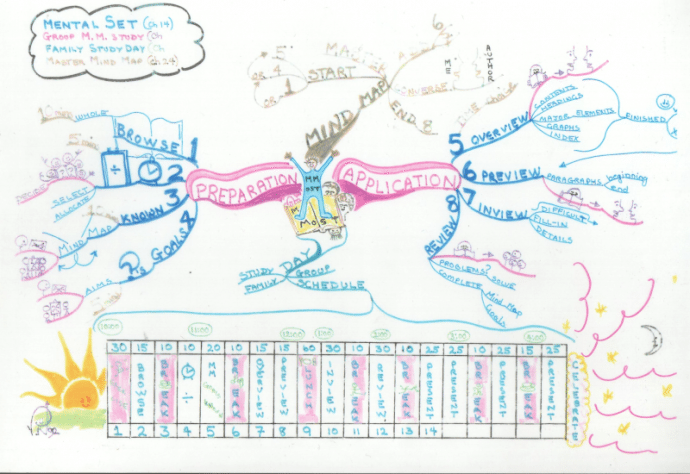 MENTAL SET (Ch 14)
GROUP M.M. STUDY (Ch
FAMILY STUDY DAY (Ch
MASTER MIND MAP (Ch 24)
MIND MAP
START
5
4
1
6
ME
AUTHOR
END 8
PREPARATION
BROWSE 1
WHOLE
2
÷
SELECT
ALLOCATE
KNOWN 3
MIND MAP
GOALS 4
AIMS
APPLICATION
5 OVERVIEW
CONTENTS
HEADINGS
MAJOR ELEMENTS
GRAPHS
INDEX
FINISHED
6 PREVIEW
PARAGRAPHS beginning
end
7 INVIEW
DIFFICULT
FILL-IN
DETAILS
REVIEW 8
PROBLEMS? SOLVE
COMPLETE Mind Map
Goals
MM
OST
MOST
DAY
STUDY GROUP
FAMILY SCHEDULE
30 15 10 10 20 10 15 15 60 30 10 30 10 25 25 10 25 15 25
BROWSE
BREAK
÷
MM
BREAK
OVERVIEW
PREVIEW
LUNCH
INVIEW
BREAK
REVIEW
BREAK
PRESENT
PRESENT
BREAK
PRESENT
BREAK
PRESENT
CELEBRATE
1 2 3 4 5 6 7 8 9 10 11 12 13 14